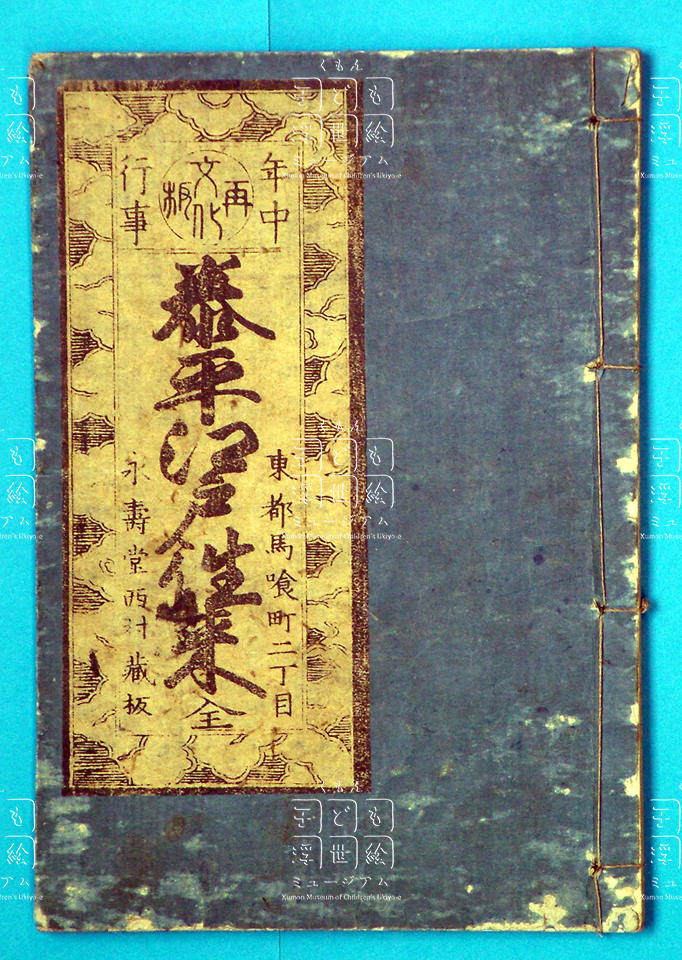 年中
行事
文化
再板
東都馬喰町二丁目
泰平江戸往来 全
永壽堂西村藏板
くもん
子ども
浮世絵
ミュージアム
Kumon Museum of Children's Ukiyo-e